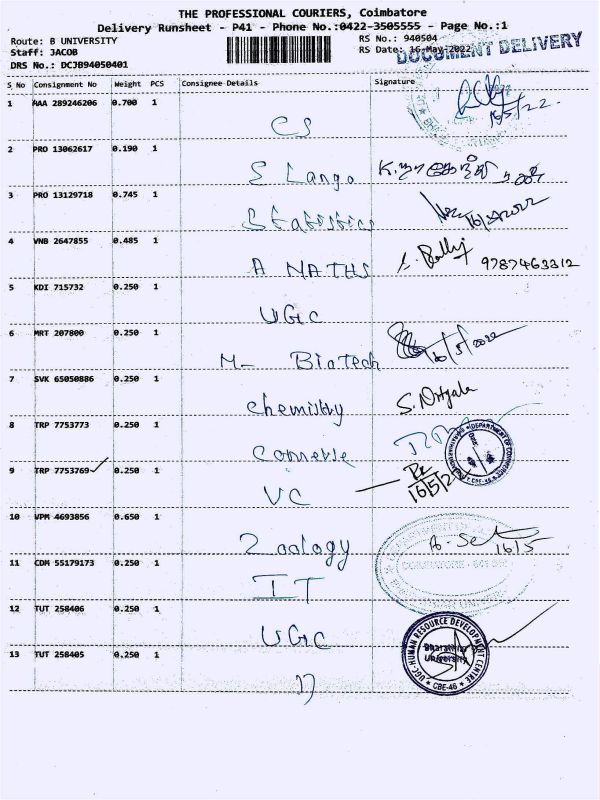 THE PROFESSIONAL COURIERS, Coimbatore
Delivery Runsheet - P41 - Phone No.:0422-3505555 - Page No.:1
Route: B UNIVERSITY
Staff: JACOB
DRS No.: DCJB94050401
RS No.: 940504
RS Date: 16-May-2022
DOCUMENT DELIVERY
S No Consignment No Weight PCS Consignee Details Signature
1 MAA 289246206 0.700 1
16/5/22
CS
2 PRO 13062617 0.190 1
S Lango
3 PRO 13129718 0.745 1
16/5/2022
Statistics
4 VNB 2647855 0.485 1
A MATHS 9787463312
5 KDI 715732 0.250 1
UGC
6 MRT 207800 0.250 1
16/5/2022
M- BioTech
7 SVK 65050886 0.250 1
chemistry
8 TRP 7753773 0.250 1
DEPARTMENT OF COMMERCE
9 TRP 7753769 0.250 1
VC
10 VPM 4693856 0.650 1
Zoology 16/5
11 CDM 55179173 0.250 1
COIMBATORE - 641 046
IT
12 TUT 258406 0.250 1
UGC
UGC-HUMAN RESOURCE DEVELOPMENT CENTRE
Bharathiar
University
CBE-46
13 TUT 258405 0.250 1